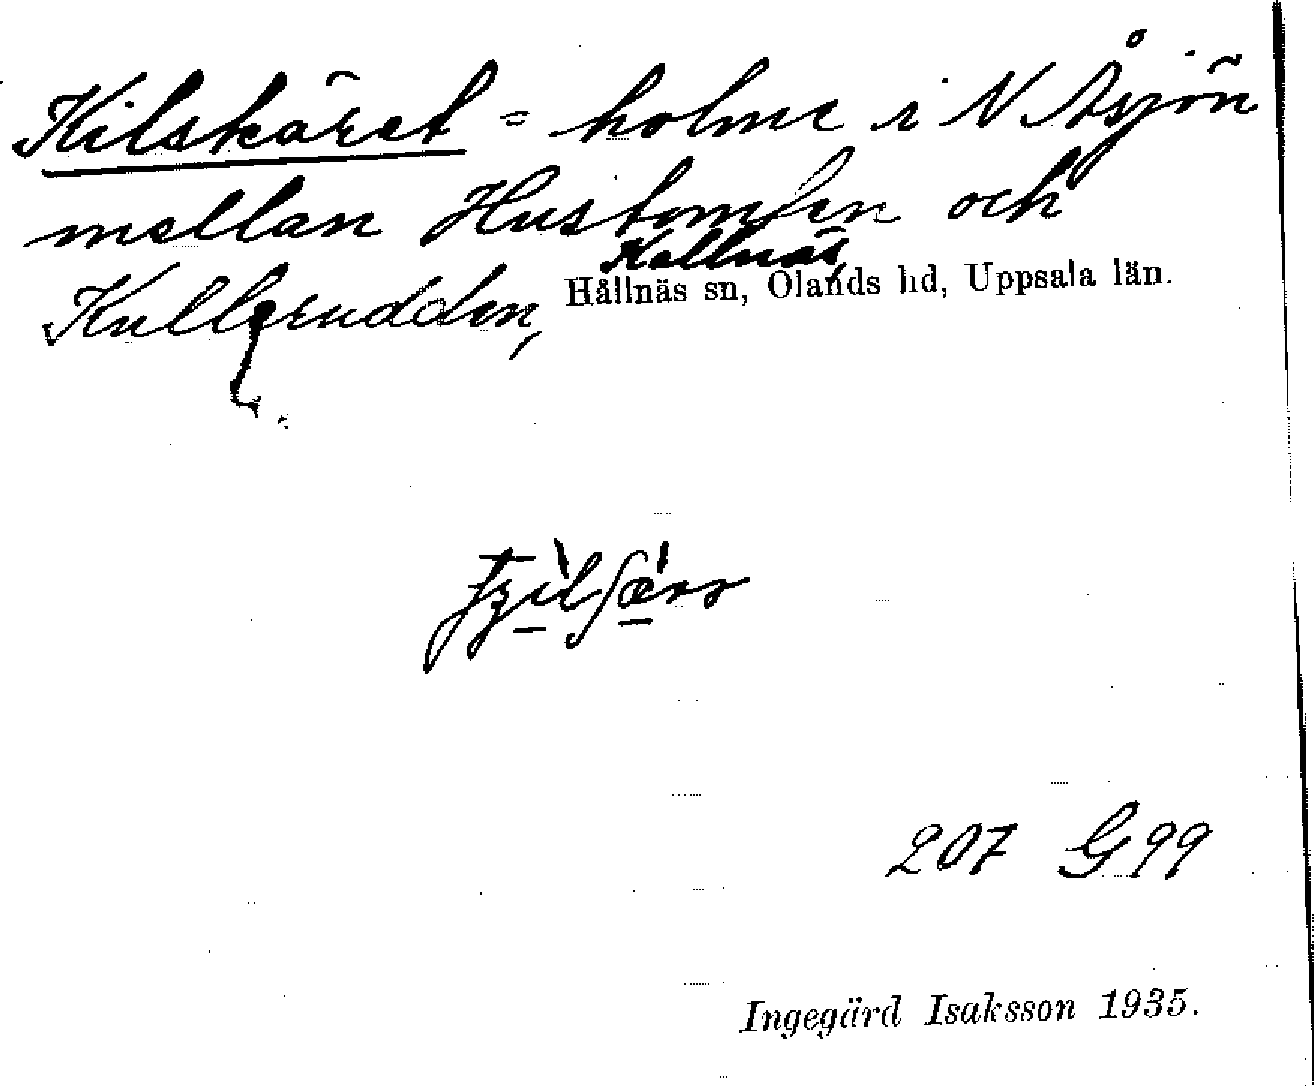 Kilskäret = holme i N Åsjön
mellan Hustomten och
Kullerudden, Kallnäs, Hållnäs sn, Olands hd, Uppsala län.
207 G 99
Ingegärd Isaksson 1935.